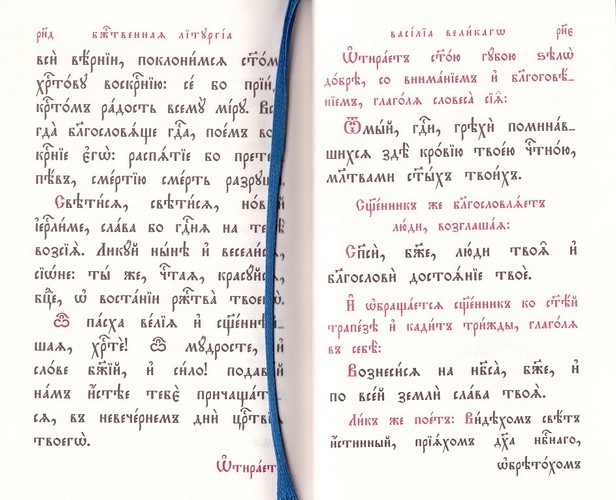 рн҃д бж҃ственная лїтꙋргі́а
всѝ вѣ́рнїи, поклони́мсѧ ст҃о́мꙋ
хрⷭ҇то́вꙋ воскрⷭ҇нїю: се́ бо прїи́де
крⷭ҇то́мъ ра́дость всемꙋ̀ мі́рꙋ. Всегда̀
бл҃гословѧ́ще гдⷭ҇а, пое́мъ воскрⷭ҇нїе
є҆гѡ̀: распѧ́тїе бо претерпѣ́въ,
сме́ртїю сме́рть разрꙋшѝ.
Свѣти́сѧ, свѣти́сѧ, но́вый
і҆ерⷭ҇ли́ме, сла́ва бо гдⷭ҇нѧ на тебѣ̀
возсїѧ̀. Ликꙋ́й ны́нѣ и҆ весели́сѧ,
сїѡ́не: ты́ же, чⷭ҇таѧ, красꙋ́йсѧ,
бцⷣе, ѡ҆ воста́нїи ржⷭ҇тва̀ твоегѡ̀.
Ѽ па́сха ве́лїѧ и҆ сщ҃е́ннѣй_
шаѧ, хрⷭ҇тѐ! ѽ мꙋ́дросте, и҆
сло́ве бж҃їй, и҆ си́ло! подава́й
на́мъ и҆́стѣе тебє̀ причаща́ти_
сѧ, въ невече́рнемъ днѝ црⷭ҇твїѧ
твоегѡ̀.
Ѿтира́етъ
васі́лїа вели́кагѡ рн҃є
Ѿтира́етъ ст҃о́ю гꙋ́бою ѕѣлѡ̀
до́брѣ, со внима́нїемъ и҆ бл҃гоговѣ́_
нїемъ, глаго́лѧ словеса̀ сїѧ̑:
Ѿмы́й, гдⷭ҇и, грѣхѝ помина́в_
шихсѧ здѣ̀ кро́вїю твое́ю чⷭ҇тно́ю,
мл҃твами ст҃ы́хъ твои́хъ.
Сщ҃е́нникъ же бл҃гословлѧ́етъ
лю́ди, возглаша́ѧ:
Сп҃сѝ, бж҃е, лю́ди твоѧ̑ и҆
бл҃гословѝ достоѧ́нїе твоѐ.
И҆ ѡ҆браща́етсѧ сщ҃е́нникъ ко ст҃ѣ́й
трапе́зѣ и҆ кади́тъ три́жды, глаго́лѧ
въ себѣ̀:
Вознеси́сѧ на нб҃са̀, бж҃е, и҆
по все́й землѝ сла́ва твоѧ̀.
Ли́къ же пое́тъ: Ви́дѣхомъ свѣ́тъ
и҆́стинный, прїѧ́хомъ дх҃а нбⷭ҇наго,
ѡ҆брѣто́хомъ